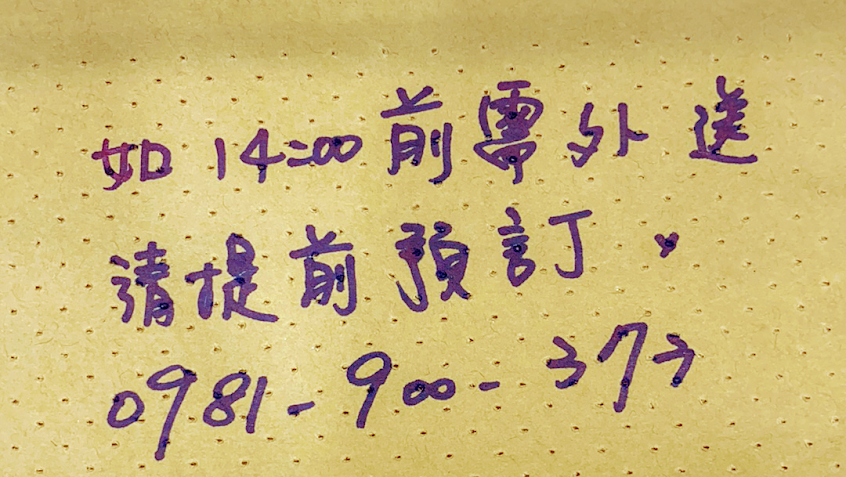 如14:00前需外送
請提前預訂。
0981-900-373